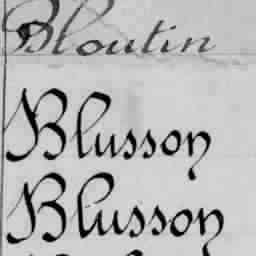 Bloutin
Blusson
Blusson